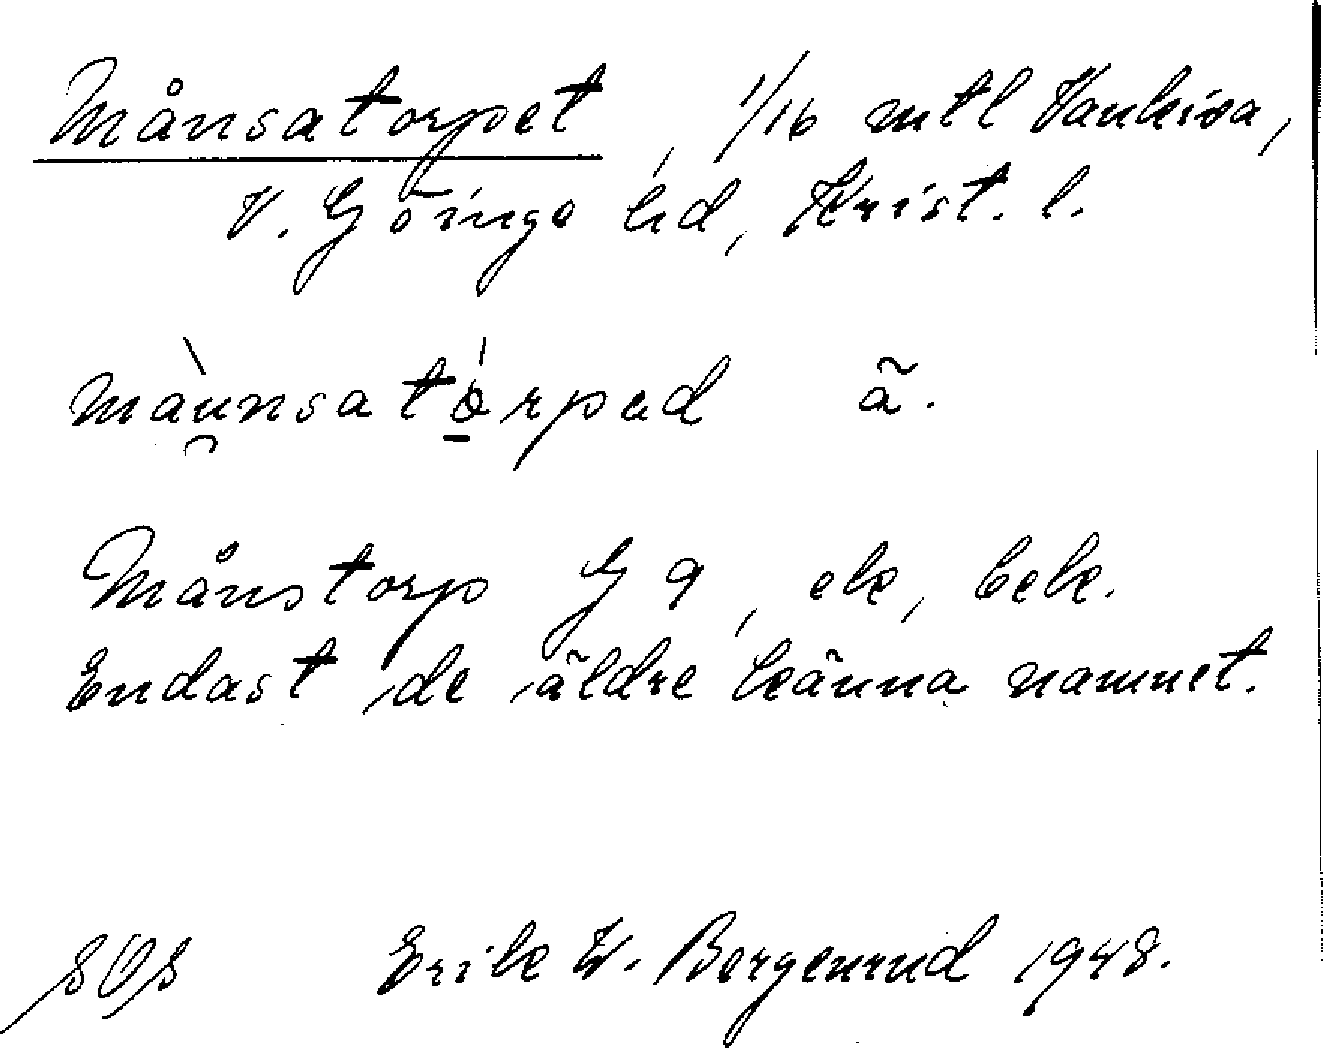 Månsatorpet, 1/16 mtl Vankiva,
V. Göinge hd, Krist. l.
màu̯nsató̠rpad ã.
Månstorp G 9, ek, bebe.
Endast de äldre känna namnet.
SOS Erik W. Bergenrud 1948.